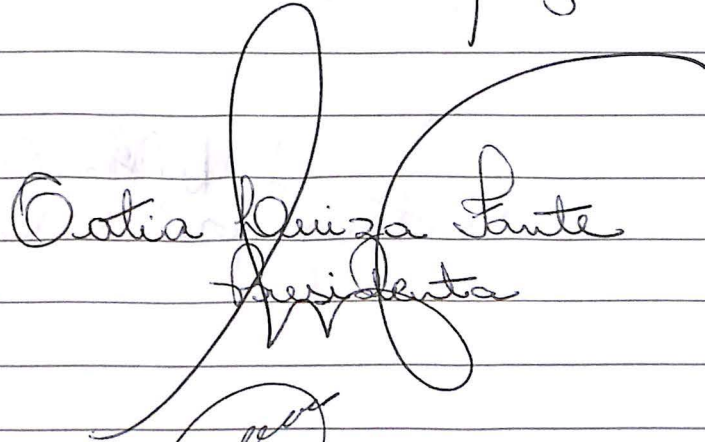 Catia Luiza Fante
Presidenta